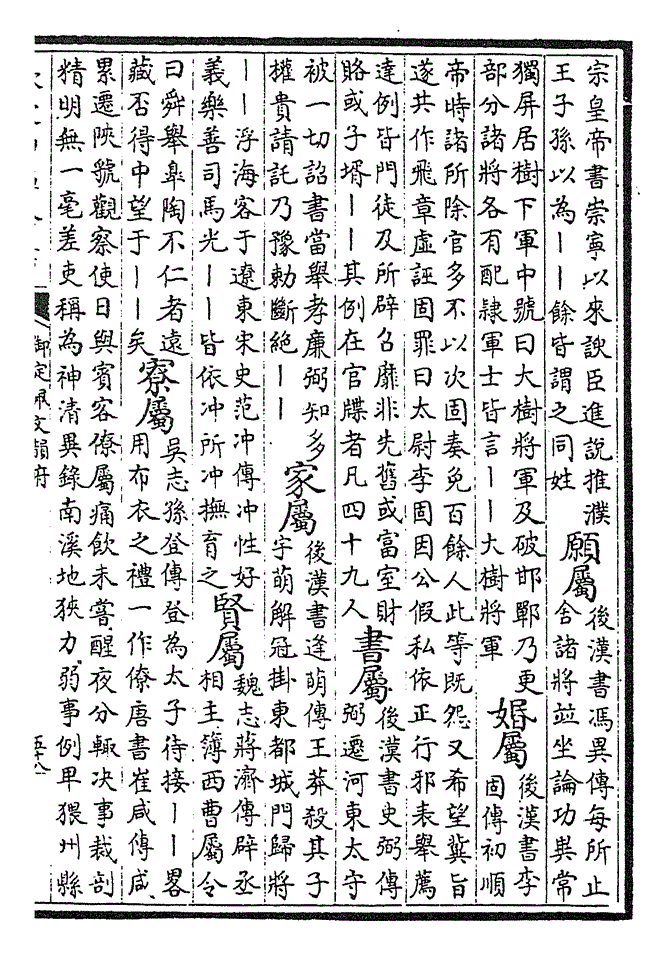 宗皇帝書崇寧以來諛臣進說推濮
王子孫以為丨丨餘皆謂之同姓
願屬
後漢書馮異傳每所止
舍諸將並坐論功異常
獨屏居樹下軍中號曰大樹將軍及破邯鄲乃更
部分諸將各有配隸軍士皆言丨丨大樹將軍
婚屬
後漢書李
固傳初順
帝時諸所除官多不以次固奏免百餘人此等既怨又希望冀旨
遂共作飛章虛誣固罪曰太尉李固因公假私依正行邪表舉薦
達例皆門徒及所辟召靡非先舊或富室財
賂或子壻丨丨其例在官牒者凡四十九人
書屬
後漢書史弼傳
弼遷河東太守
被一切詔書當舉孝廉弼知多
權貴請託乃豫勅斷絕丨丨
家屬
後漢書逢萌傳王莽殺其子
字萌解冠掛東都城門歸將
丨丨浮海客于遼東宋史范冲傳冲性好
義樂善司馬光丨丨皆依冲所冲撫育之
賢屬
魏志蔣濟傳辟丞
相主簿西曹屬令
曰舜舉皐陶不仁者遠
臧否得中望于丨丨矣
寮屬
吳志孫登傳登為太子待接丨丨畧
用布衣之禮一作僚唐書崔咸傳咸
累遷陜虢觀察使日與賓客僚屬痛飲未嘗醒夜分輒决事裁剖
精明無一毫差吏稱為神清異錄南溪地狹力弱事例卑猥州縣
御定佩文韻府